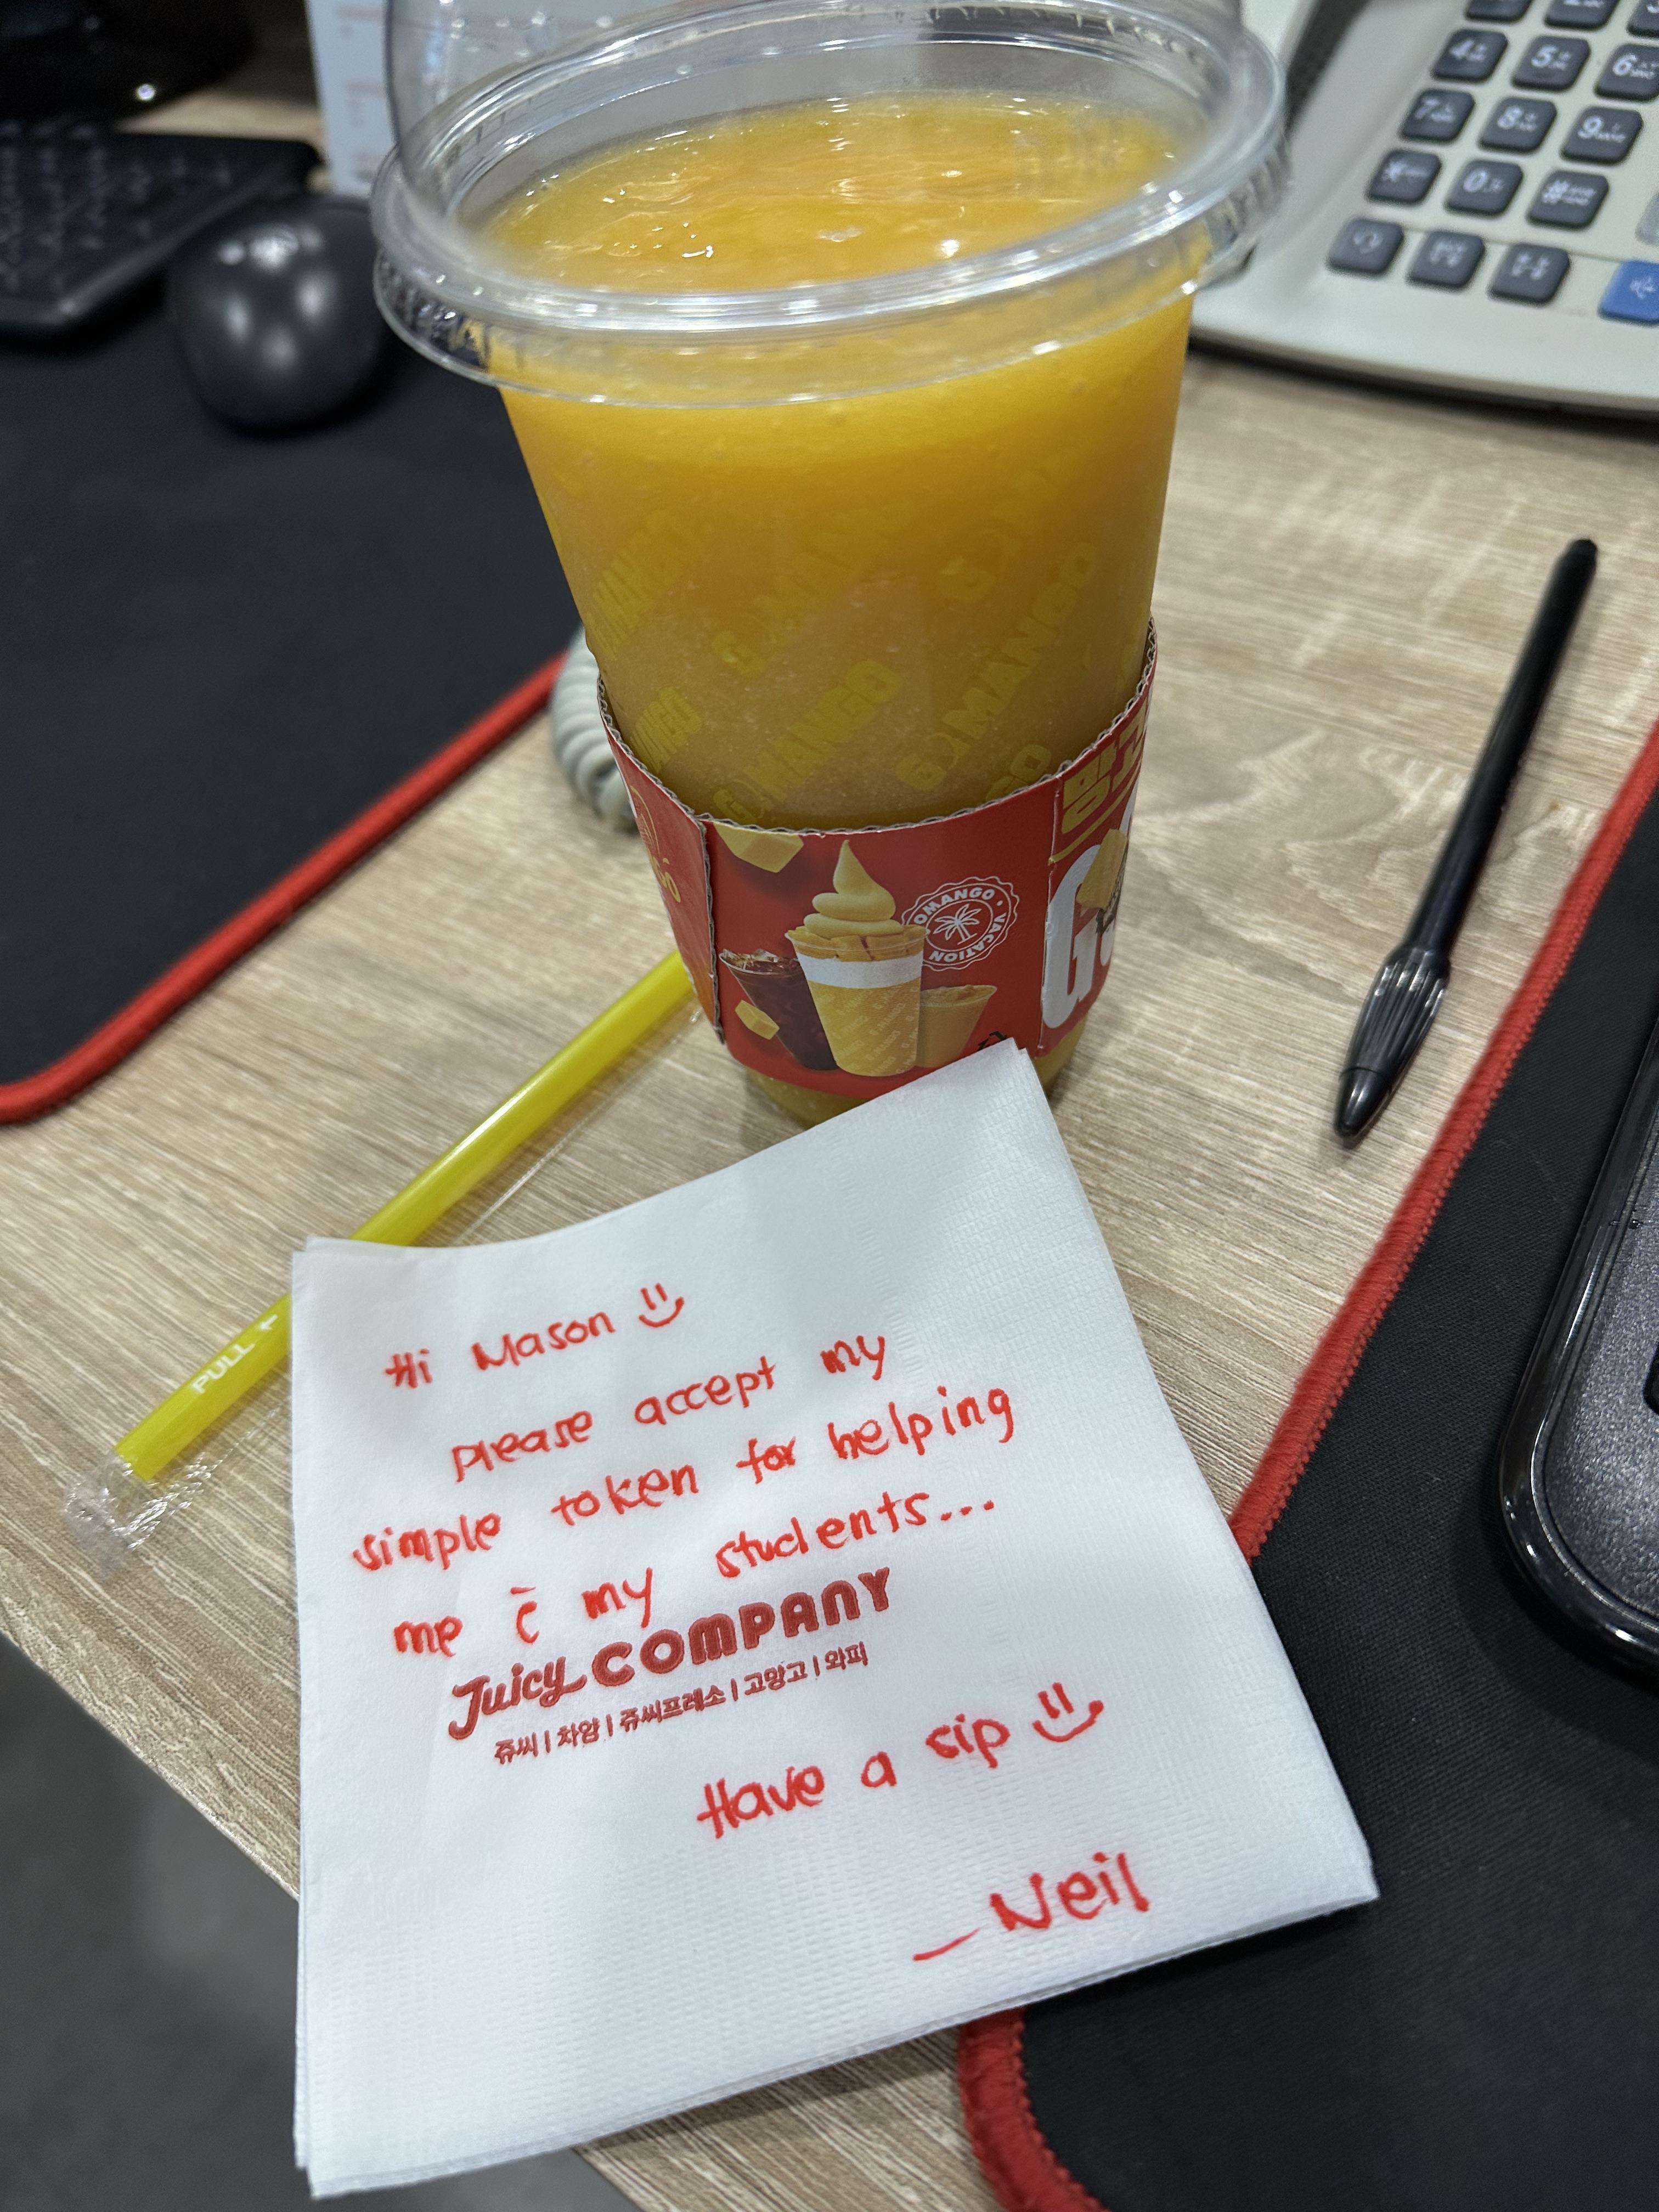 4
5
6
7
8
9
0
#
G MANGO
G MANGO
G MANGO
G MANGO
망고
OMANGO • VACATION
PULL
Hi Mason
please accept my
simple token for helping
me c̄ my students...
Juicy COMPANY
쥬씨 | 차얌 | 쥬씨프레소 | 고망고 | 와피
Have a sip
_Neil